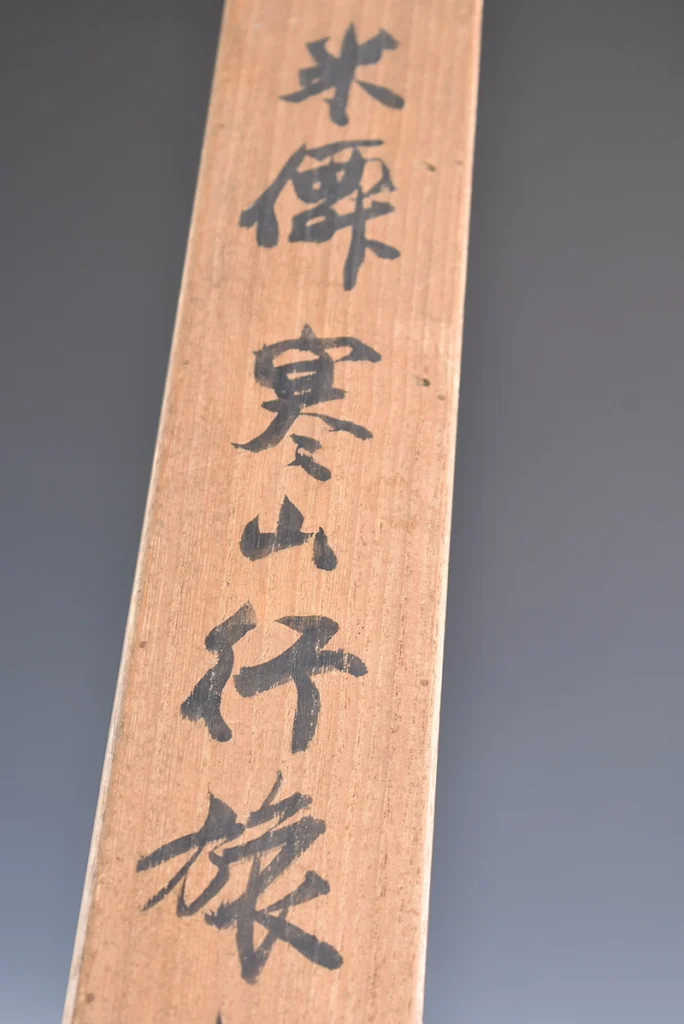 米僊 寒山行旅